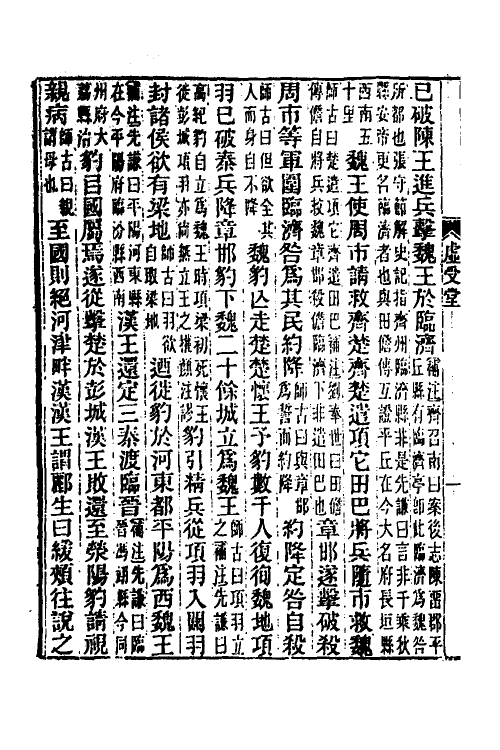 虛受堂
一
已破陳王進兵擊魏王於臨濟補注齊召南曰案後志陳留郡平丘縣有臨濟亭即此臨濟為魏咎
所都也張守節解史記指齊州臨濟縣非是先謙曰言非千乘狄縣安帝更名臨濟者也與田儋傳互證平丘在今大名府長垣縣
西南五十里魏王使周市請救齊楚齊楚遣項它田巴將兵隨市救魏
師古曰楚遣項它齊遣田巴補注劉奉世曰田儋傳儋自將兵救魏章邯殺儋於臨濟下非遣田巴也章邯遂擊破殺
周市等軍圍臨濟咎為其民約降師古曰與章邯為誓而約降約降定咎自殺
師古曰但欲全其人而身自不降魏豹亡走楚楚懷王予豹數千人復徇魏地項
羽已破秦兵降章邯豹下魏二十餘城立為魏王師古曰項羽立之補注先謙曰
高紀豹自立為魏王時項梁初死懷王徙彭城項羽亦尚無立王之權顏注謬豹引精兵從項羽入關羽
封諸侯欲有梁地師古曰羽欲自取梁地迺徙豹於河東都平陽為西魏王
補注先謙曰平陽河東縣在今平陽府臨汾縣西南漢王還定三秦渡臨晉補注先謙曰臨晉馮翊縣今同
州府大荔縣治豹㠯國屬焉遂從擊楚於彭城漢王敗還至滎陽豹請視
親病師古曰親謂母也至國則絕河津畔漢漢王謂酈生曰緩頰往說之